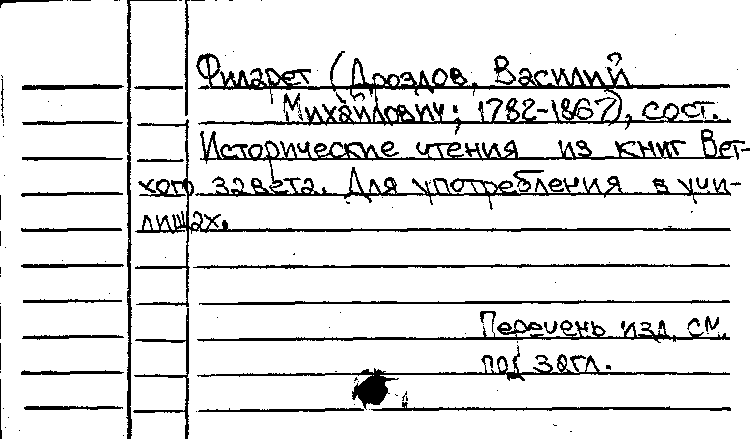 Филарет (Дроздов, Василий
Михайлович; 1782-1867), сост.
Исторические чтения из книг Вет-
хого завета. Для употребления в учи-
лищах.
Перечень изд. см.
под загл.